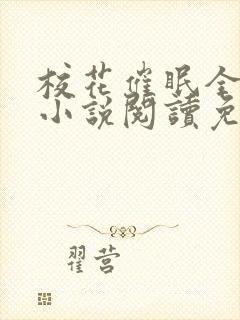 校花催眠全
小說閱讀免
翟营